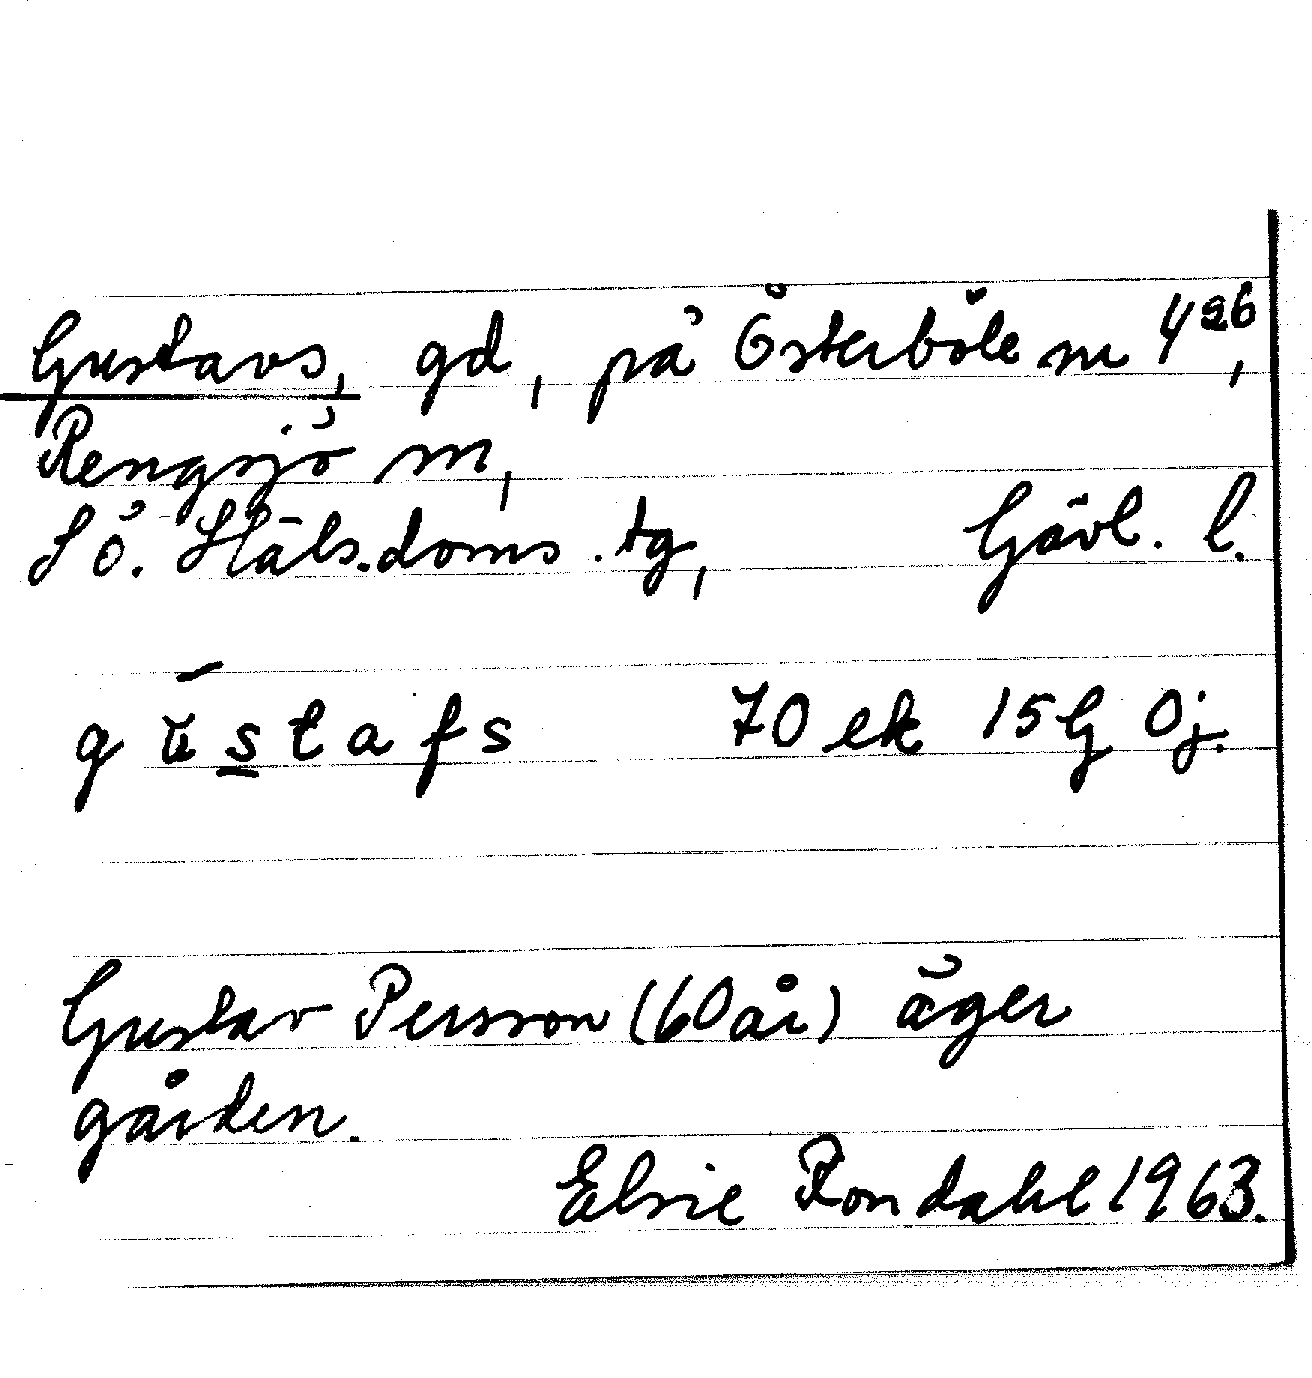 Gustavs, gd, på Österböle nr 4²⁶,
Rengsjö sn,
Sö. Häls. doms. tg, Gävl. l.
g ū s t a f s 70 ek 15 G 0j.
Gustav Persson (60 år) äger
gården.
Elsie Rondahl 1963.